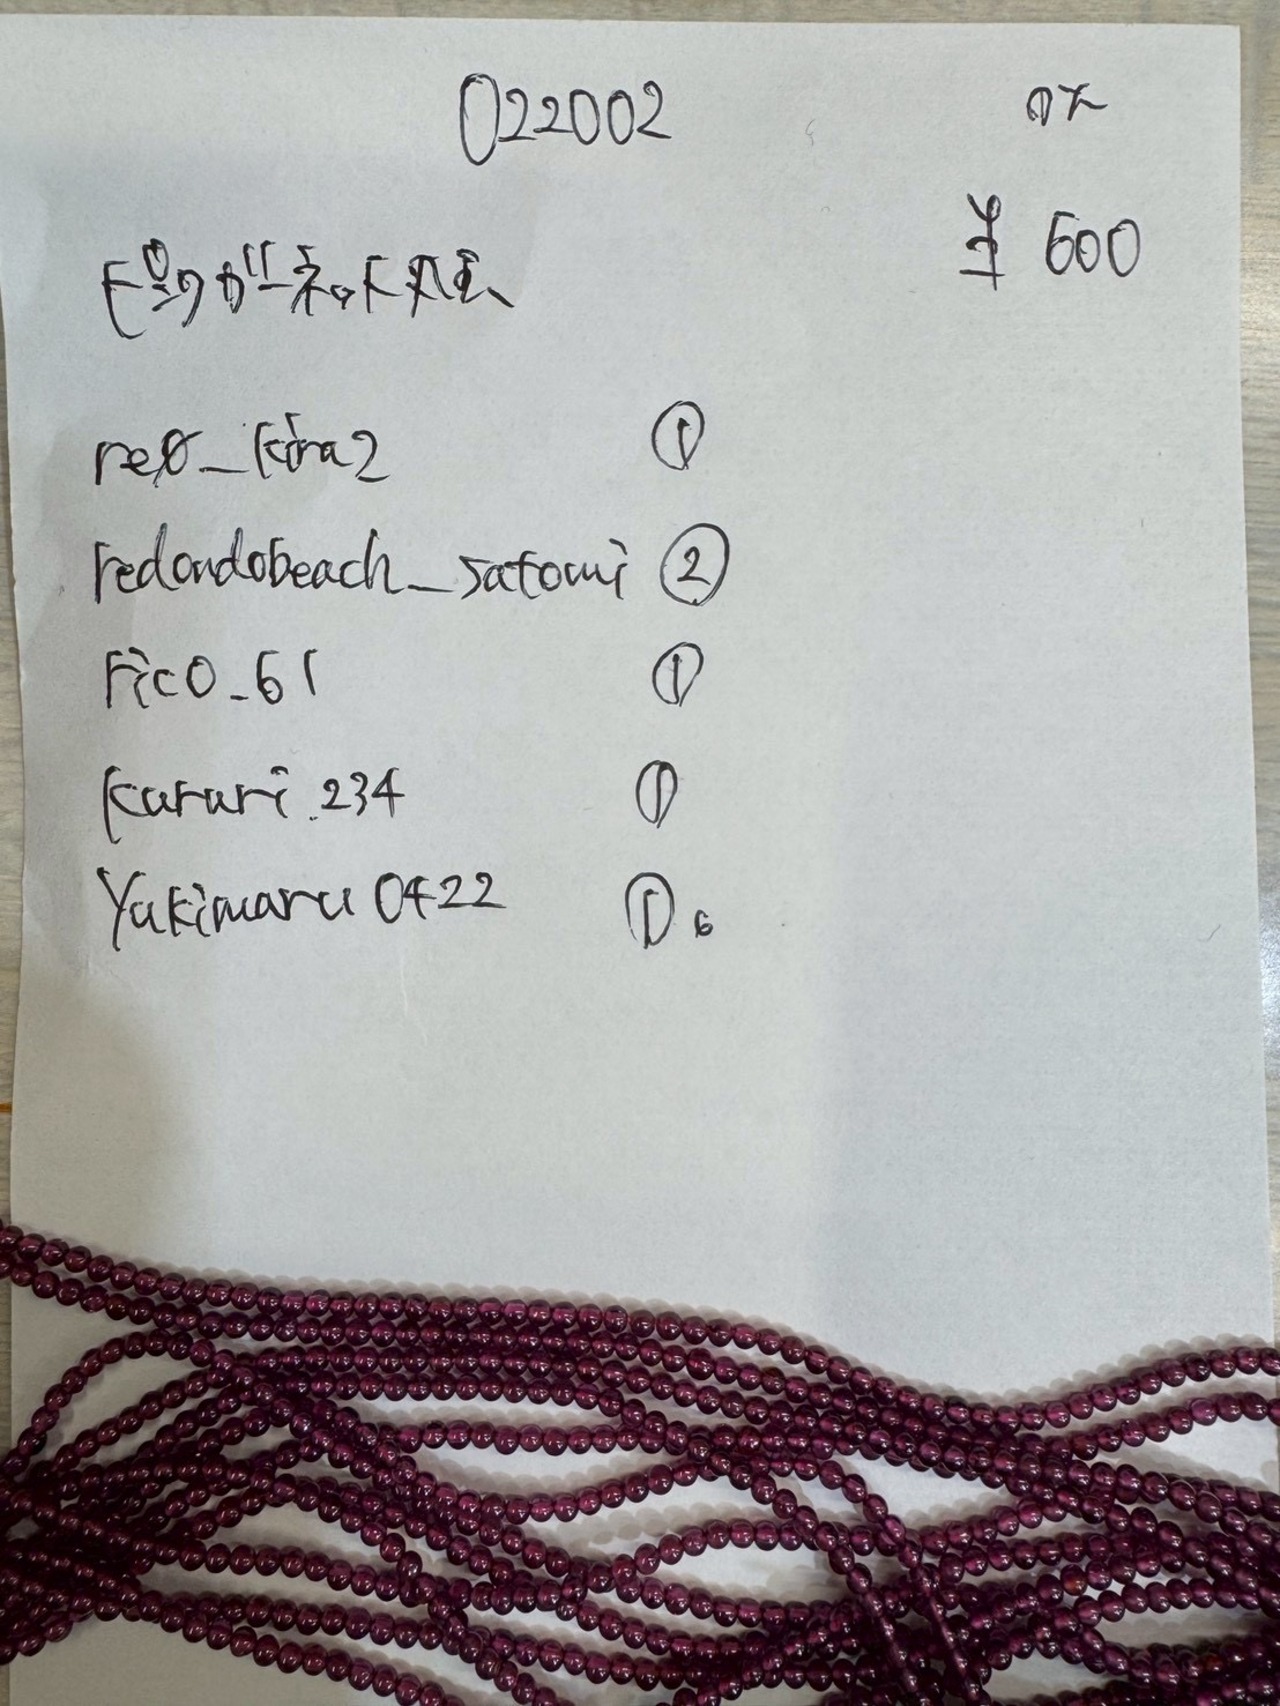 022002
¥ 600
re8_kira2 ①
redondobeach_satomi ②
rico_61 ①
karuri.234 ①
Yukimaru0422 ① 6